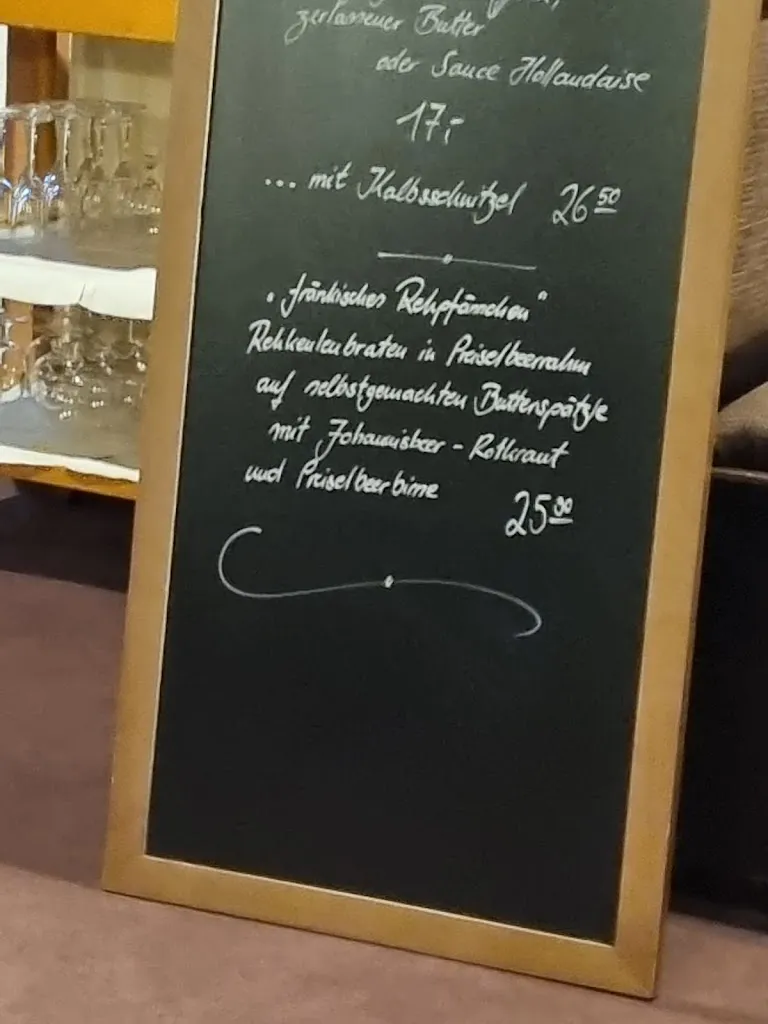 zerlassener Butter
oder Sauce Hollandaise
17,-
... mit Kalbsschnitzel 26 50
"fränkisches Rehpfännchen"
Rehkeulenbraten in Preiselbeerrahm
auf selbstgemachten Butterspätzle
mit Johannisbeer - Rotkraut
und Preiselbeerbirne
25 00